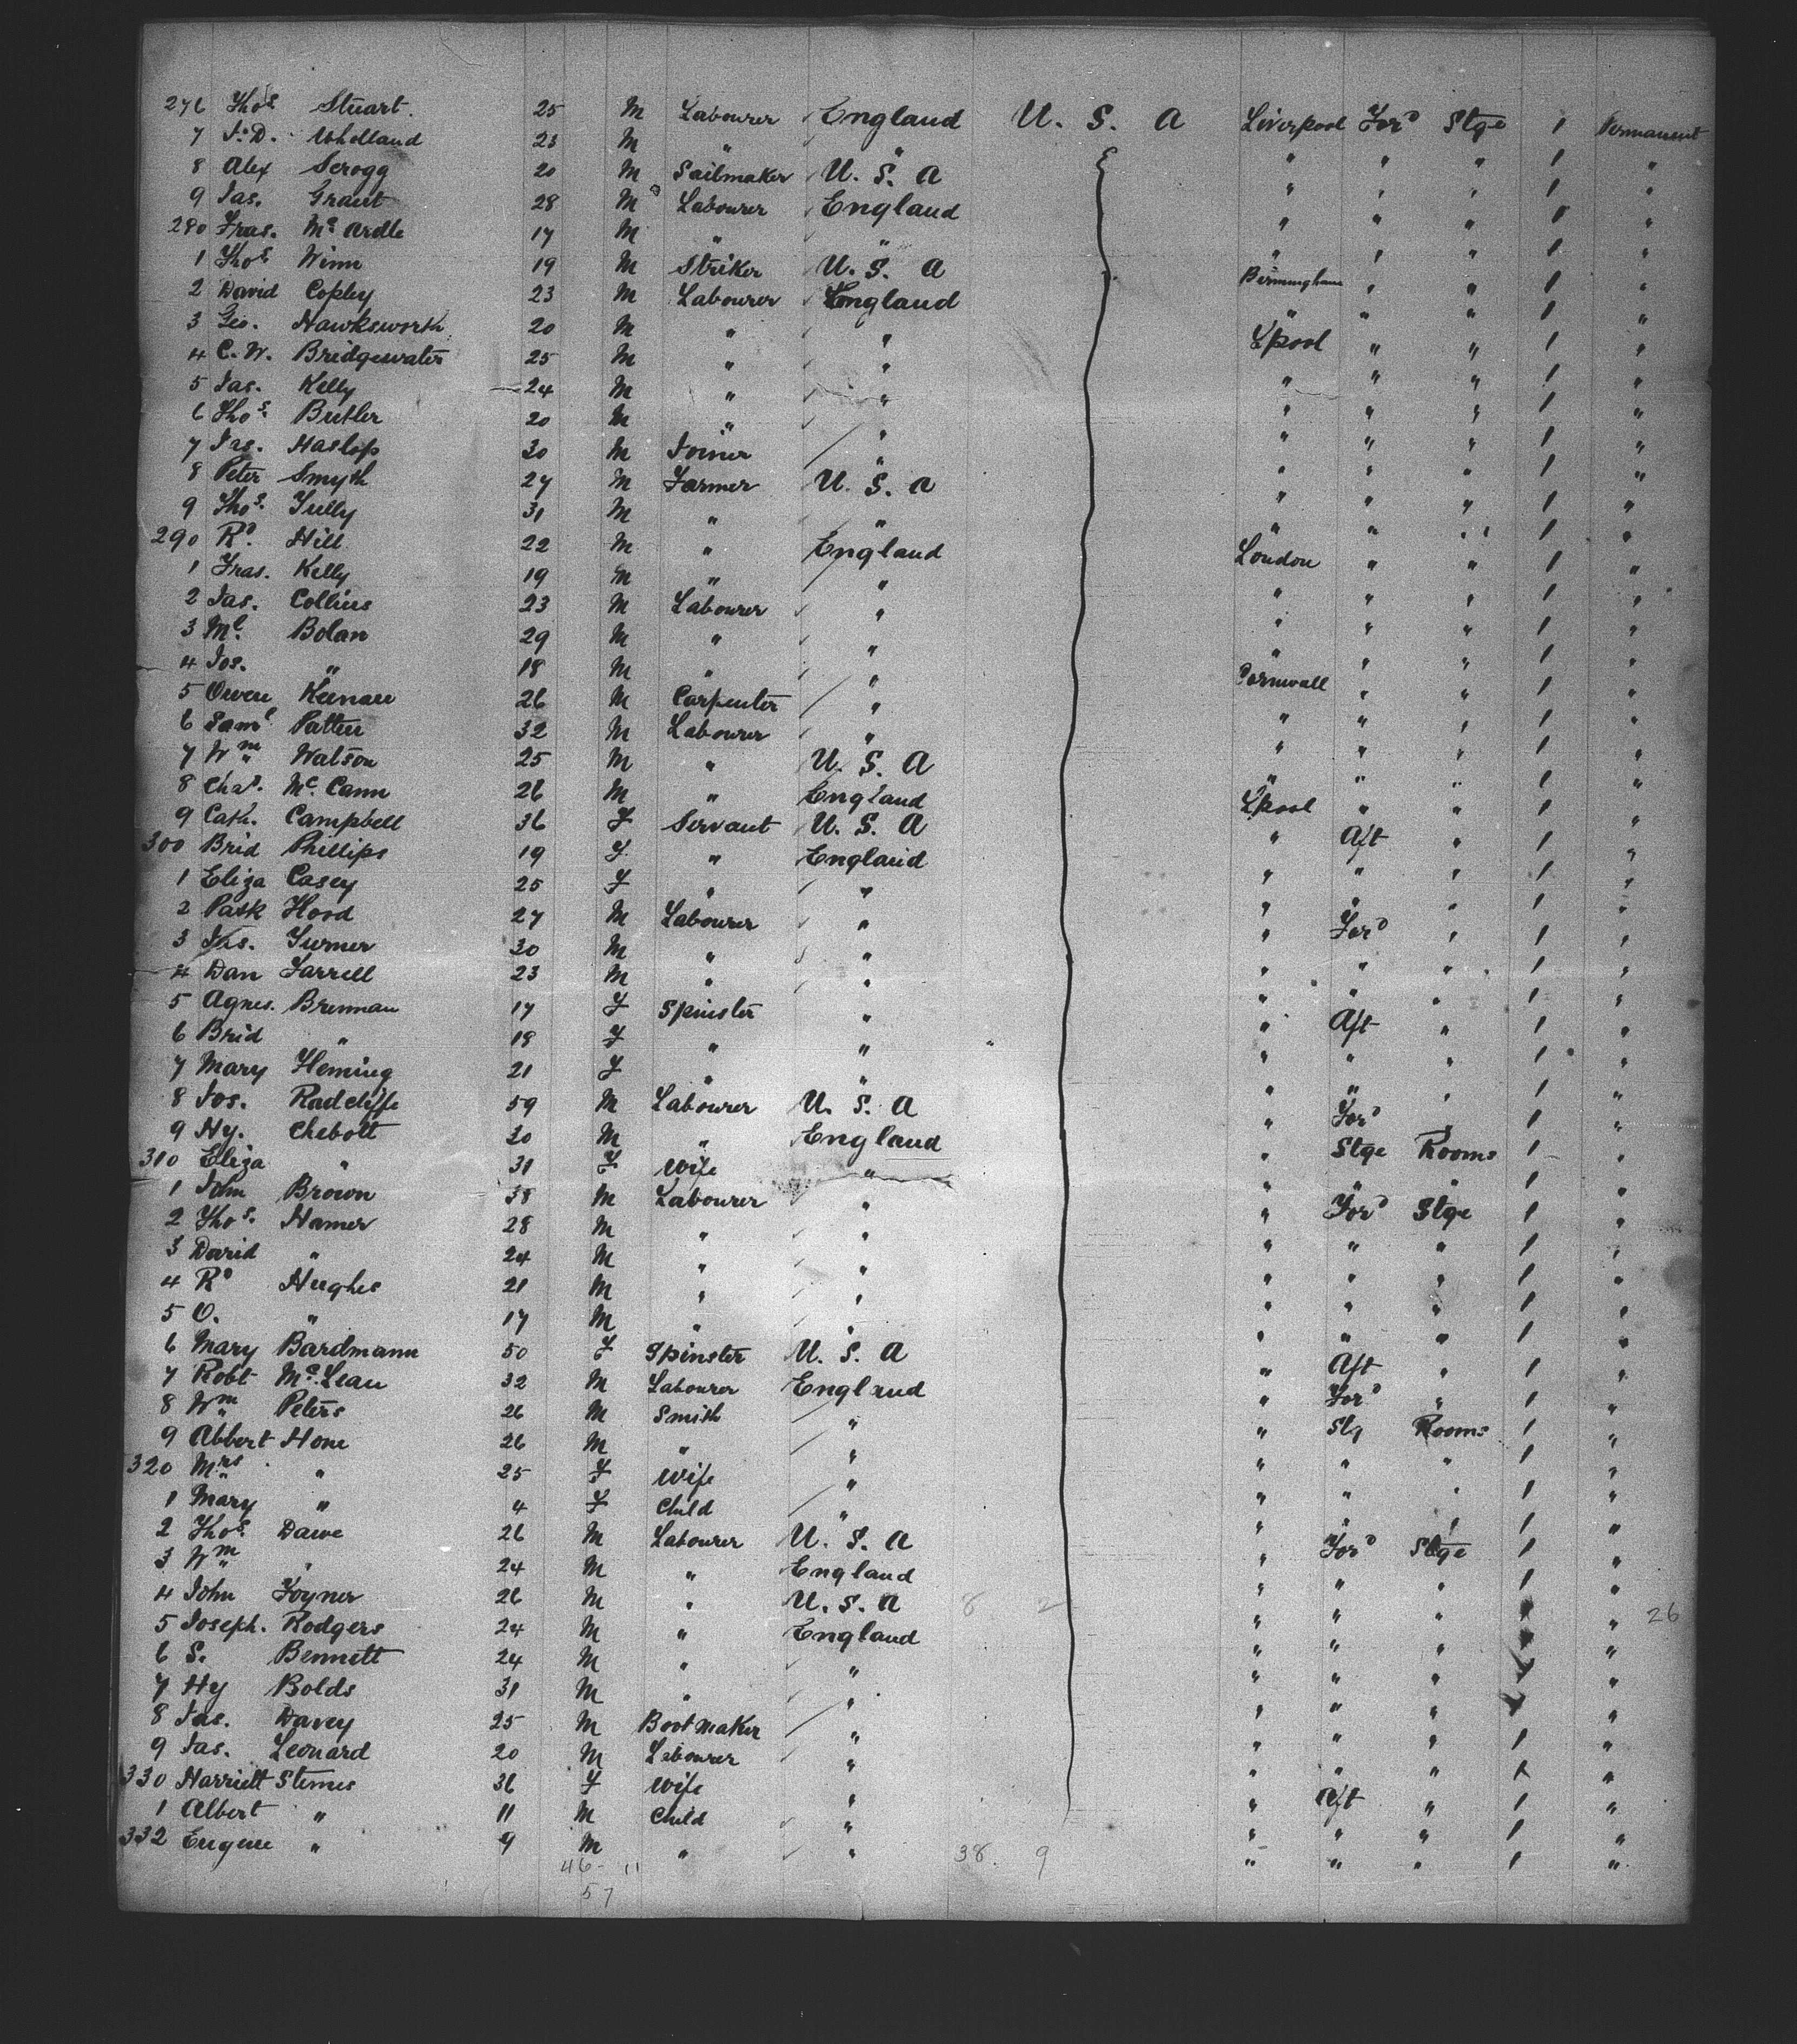 276 Thos. Stuart. 25 M Labourer England U. S. A Liverpool Ford Stge 1 Permanent
7 J. D. Whelland 23 M " " " " " 1 "
8 Alex Scrogg 20 M Sailmaker U. S. A " " " 1 "
9 Jas. Grant 28 M Labourer England " " " 1 "
280 Fras. Mc Ardle 17 M " " " " " 1 "
1 Thos. Winn 19 M Striker U. S. A Birmingham " " 1 "
2 David Copley 23 M Labourer England " " " 1 "
3 Geo. Hawksworth 20 M " " L'pool " " 1 "
4 C. W. Bridgewater 25 M " " " " " 1 "
5 Jas. Kelly 24 M " " " " " 1 "
6 Thos. Butler 20 M " " " " " 1 "
7 Jas. Haslop 30 M Joiner " " " " 1 "
8 Peter Smyth 27 M Farmer U. S. A " " " 1 "
9 Thos. Tully 31 M " " " " " 1 "
290 Rd. Hill 22 M " England London " " 1 "
1 Fras. Kelly 19 M " " " " " 1 "
2 Jas. Collins 23 M Labourer " " " " 1 "
3 Ml. Bolan 29 M " " " " " 1 "
4 Jos. " 18 M " " Cornwall " " 1 "
5 Owen Keenan 26 M Carpenter " " " " 1 "
6 Saml Patten 32 M Labourer " " " " 1 "
7 Wm Watson 25 M " U. S. A " " " 1 "
8 Chas. Mc. Cann 26 M " England L'pool " " 1 "
9 Cath. Campbell 36 F Servant U. S. A " Aft " 1 "
300 Brid Phillips 19 F " England " " " 1 "
1 Eliza Casey 25 F " " " " " 1 "
2 Patk Hood 27 M Labourer " " Ford " 1 "
3 Jas. Turner 30 M " " " " " 1 "
4 Dan Farrell 23 M " " " " " 1 "
5 Agnes. Brennan 17 F Spinster " " Aft " 1 "
6 Brid " 18 F " " " " " 1 "
7 Mary Fleming 21 F " " " " " 1 "
8 Jos. Radcliffe 59 M Labourer U. S. A " Ford " 1 "
9 Hy. Chebott 30 M " England " Stge Rooms 1 "
310 Eliza " 31 F Wife " " " " 1 "
1 John Brown 38 M Labourer " " Ford Stge 1 "
2 Thos. Hamer 28 M " " " " " 1 "
3 David " 24 M " " " " " 1 "
4 Rd Hughes 21 M " " " " " 1 "
5 O. " 17 M " " " " " 1 "
6 Mary Bardmann 50 F Spinster U. S. A " Aft " 1 "
7 Robt Mc. Lean 32 M Labourer England " Ford " 1 "
8 Wm Peters 26 M Smith " " Stg Rooms 1 "
9 Abbert Hone 26 M " " " " " 1 "
320 Mrs " 25 F Wife " " " " 1 "
1 Mary " 4 F Child " " " " 1 "
2 Thos. Dawe 26 M Labourer U. S. A " Ford Stge 1 "
3 Wm " 24 M " England " " " 1 "
4 John Joyner 26 M " U. S. A 8 2 " " " 1 " 26
5 Joseph. Rodgers 24 M " England " " " "
6 S. Bennett 24 M " " " " " "
7 Hy Bolds 31 M " " " " " "
8 Jas. Davey 25 M Bootmaker " " " " 1 "
9 Jas. Leonard 20 M Labourer " " " " 1 "
330 Harriett Stemes 36 F Wife " " Aft " 1 "
1 Albert " 11 M Child " " " " 1 "
332 Eugene " 9 M " " " " " 1 "
46- 11 38. 9
57